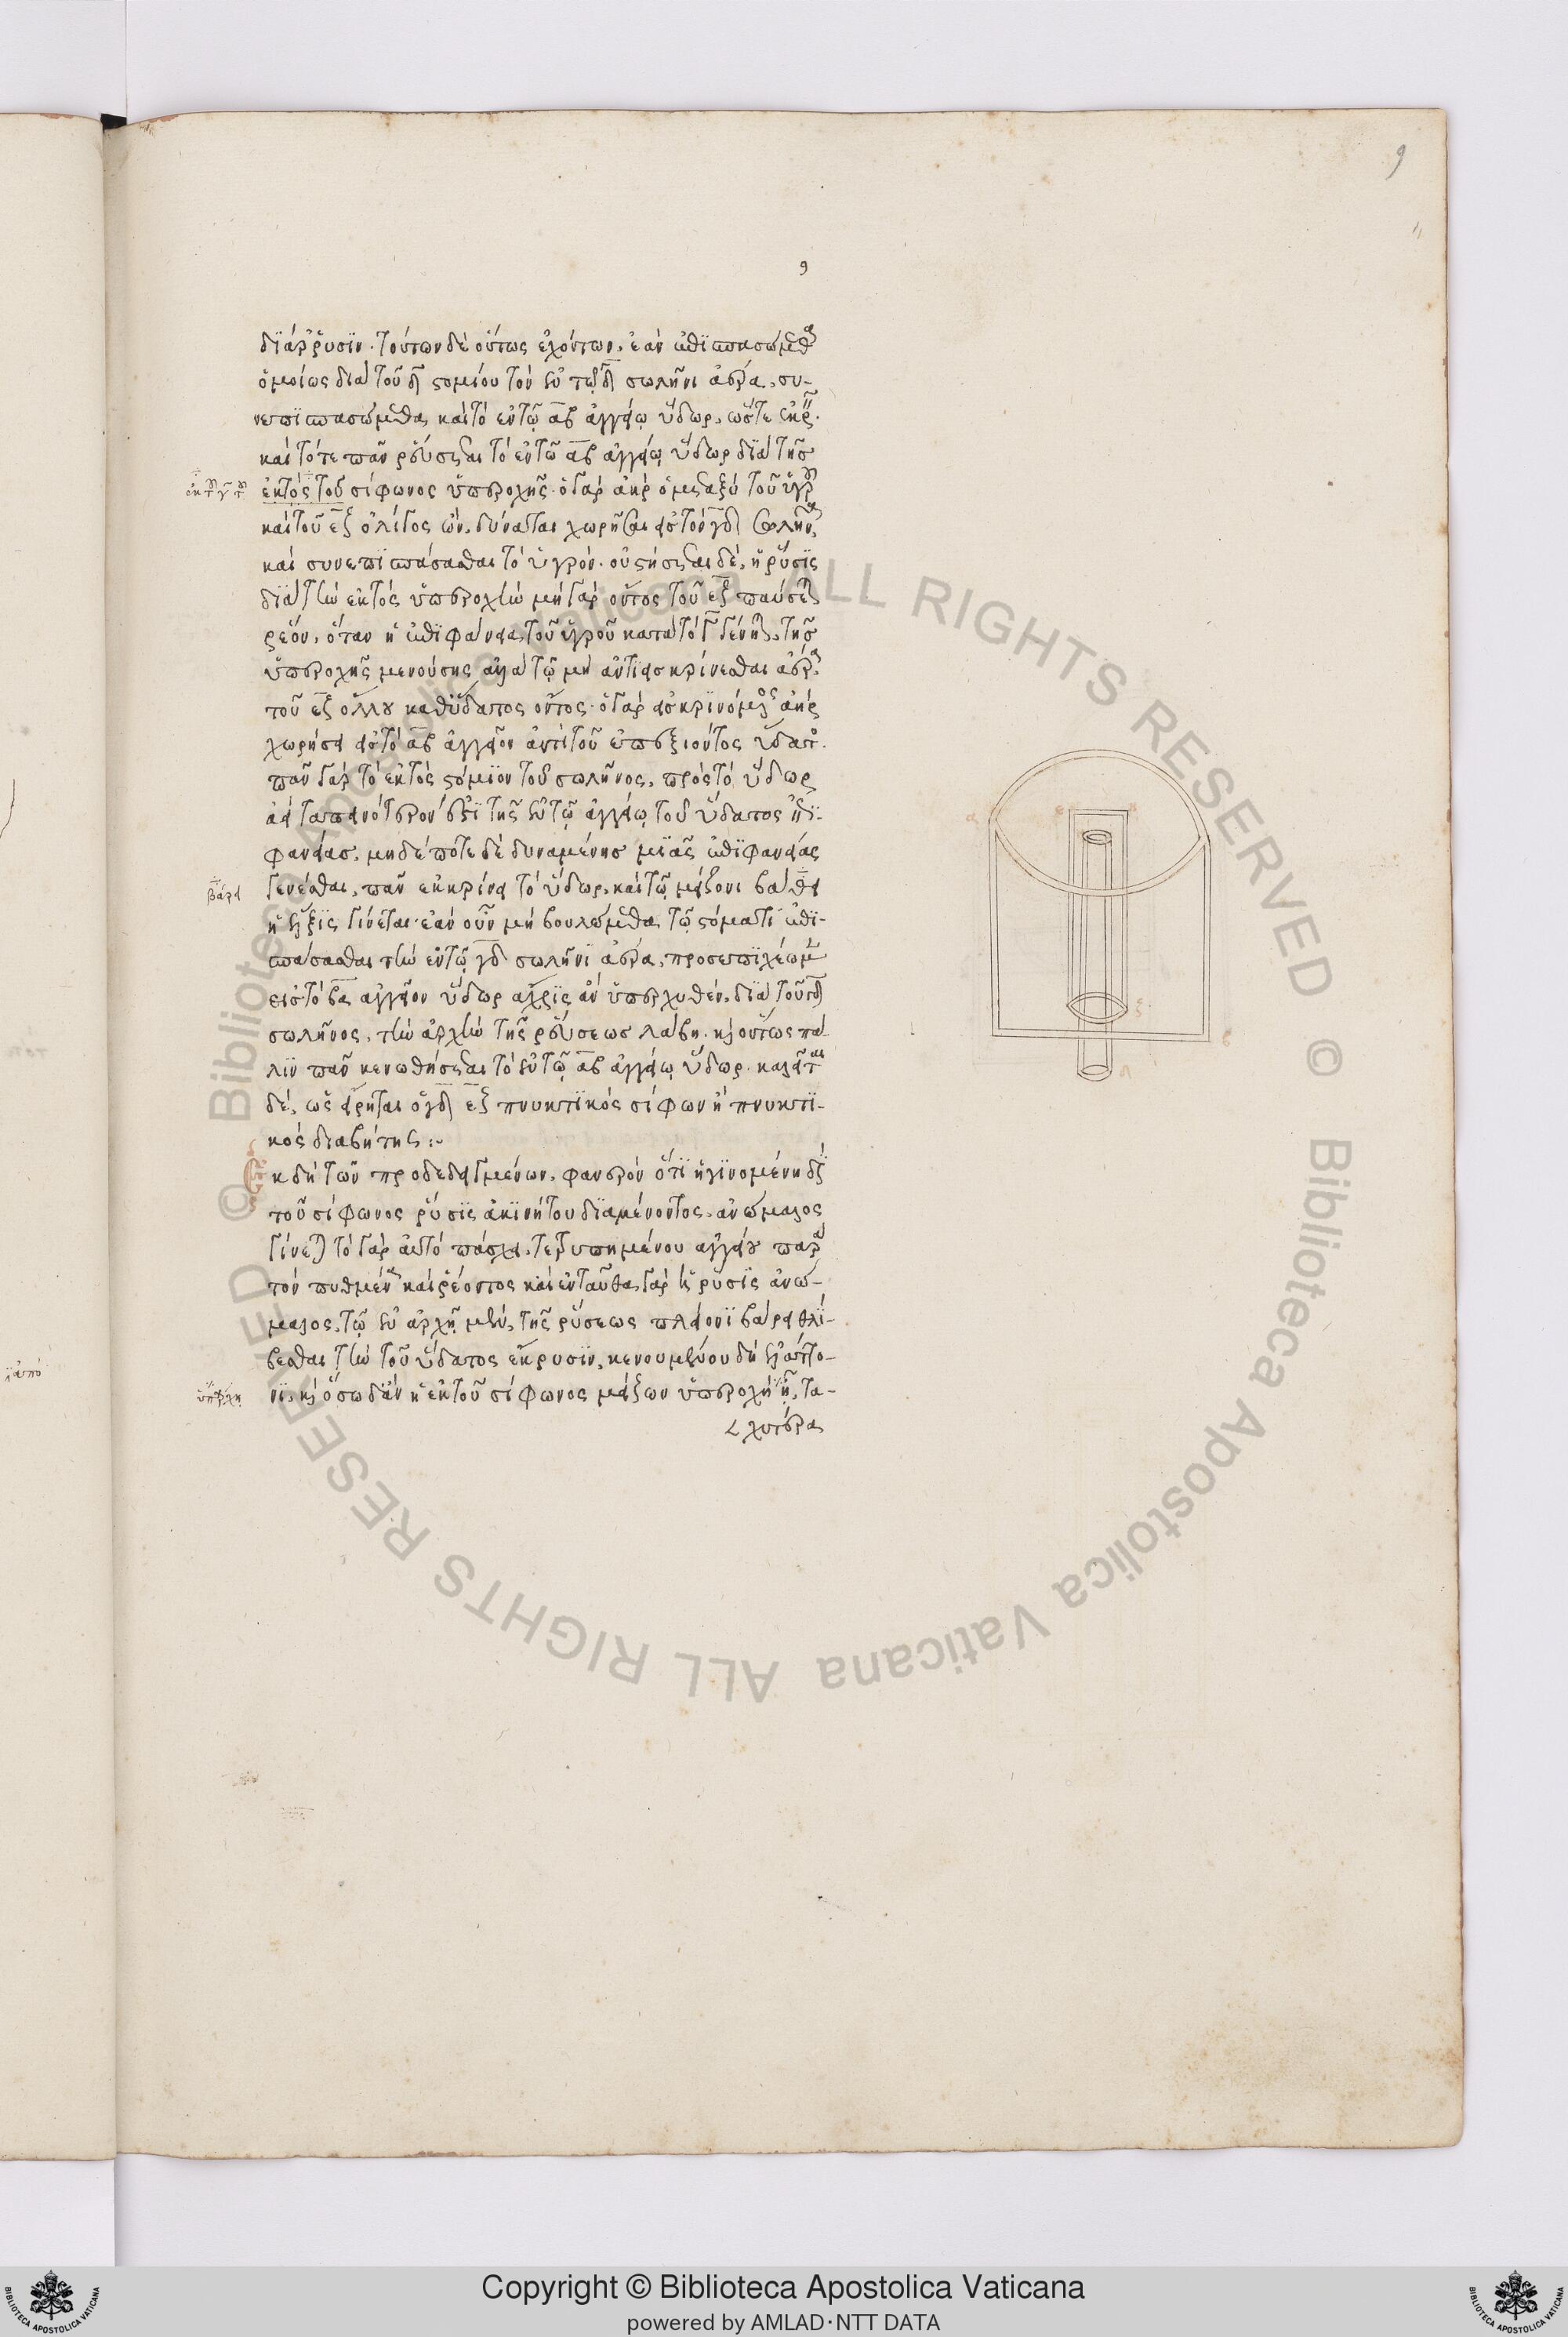 9
9
διάρρυσιν. τούτων δὲ οὕτως ἐχόντων, ἐὰν ἐπισπασώμεθα
ὁμοίως διὰ τοῦ στομίου τὸν ἐν τῷ σωλῆνι ἀέρα, συ-
νεπισπασώμεθα καὶ τὸ ἐν τῷ αβ ἀγγείῳ ὕδωρ, ὥστε
καὶ τότε πᾶν ῥεύσεται τὸ ἐν τῷ αβ ἀγγείῳ ὕδωρ διὰ τῆς
ἐκτὸς τοῦ σίφωνος ὑπεροχῆς. ὁ γὰρ ἀὴρ ὁ μεταξὺ τοῦ ὑγροῦ
καὶ τοῦ εζ ὀλίγος ὢν, δύναται χωρῆσαι εἰς τὸν γδ σωλῆνα,
καὶ συνεπισπάσασθαι τὸ ὑγρόν. οὐ στήσεται δὲ, ἡ ῥύσις
διὰ τὴν ἐκτὸς ὑπεροχήν μὴ γὰρ ὄντος τοῦ εζ παύσεται
ῥέον, ὅταν ἡ ἐπιφάνεια τοῦ ὑγροῦ κατὰ τὸ γένηται, τῆς
ὑπεροχῆς μενούσης ἀλλὰ τῷ μὴ ἀντεισκρίνεσθαι ἀέρα
τοῦ εζ ὅλου καθ' ὕδατος ὄντος. ὁ γὰρ εἰσκρινόμενος ἀὴρ
χωρήσει εἰς τὸ αβ ἀγγεῖον ἀντὶ τοῦ ὑπεξιόντος ὕδατος.
πᾶν γὰρ τὸ ἐκτὸς στόμιον τοῦ σωλῆνος, πρὸς τὸ ὕδωρ
ἀεὶ ταπεινότερον ἐστὶ τῆς ἐν τῷ ἀγγείῳ τοῦ ὕδατος ἐπι-
φανείας, μηδέποτε δὲ δυναμένης μιᾶς ἐπιφανείας
βάρει
γενέσθαι, πᾶν ἐκκρίνει τὸ ὕδωρ, καὶ τῷ μείζονι βάθει
ἡ ἕλξις γίνεται. ἐὰν οὖν μὴ βουλώμεθα τῷ στόματι ἐπι-
σπάσασθαι τὴν ἐν τῷ γδ σωλῆνι ἀέρα, προσεπιχέωμεν
εἰς τὸ βα ἀγγεῖον ὕδωρ ἄχρις ἂν ὑπερχυθὲν, διὰ τοῦ γδ
σωλῆνος, τὴν ἀρχὴν τῆς ῥεύσεως λάβῃ. καὶ οὕτως πά-
λιν πᾶν κενωθήσεται τὸ ἐν τῷ αβ ἀγγείῳ ὕδωρ. καλεῖται
δὲ, ὡς εἴρηται ὁ γδ εζ πνικτικὸς σίφων ἢ πνικτι-
κὸς διαβήτης :~
Ἐκ δὴ τῶν προδεδειγμένων, φανερὸν ὅτι ἡ γινομένη διὰ
τοῦ σίφωνος ῥύσις ἀκινήτου διαμένοντος, ἀνώμαλος
γίνεται τὸ γὰρ αὐτὸ πάσχει, τετρυπημένου ἀγγείου παρὰ
τὸν πυθμένα καὶ ῥέοντος καὶ ἐνταῦθα γὰρ ἡ ῥύσις ἀνώ-
μαλος, τῷ ἐν ἀρχῇ μὲν, τῆς ῥύσεως πλείονι βάρει θλί-
βεσθαι τὴν τοῦ ὕδατος ἔκρυσιν, κενουμένου δὴ ἐλάττο-
νι, καὶ ὅσῳ δ' ἂν ἡ ἐκ τοῦ σίφωνος μείζων ὑπεροχὴ ᾖ, τα-
χυτέρα
Copyright © Biblioteca Apostolica Vaticana
powered by AMLAD·NTT DATA